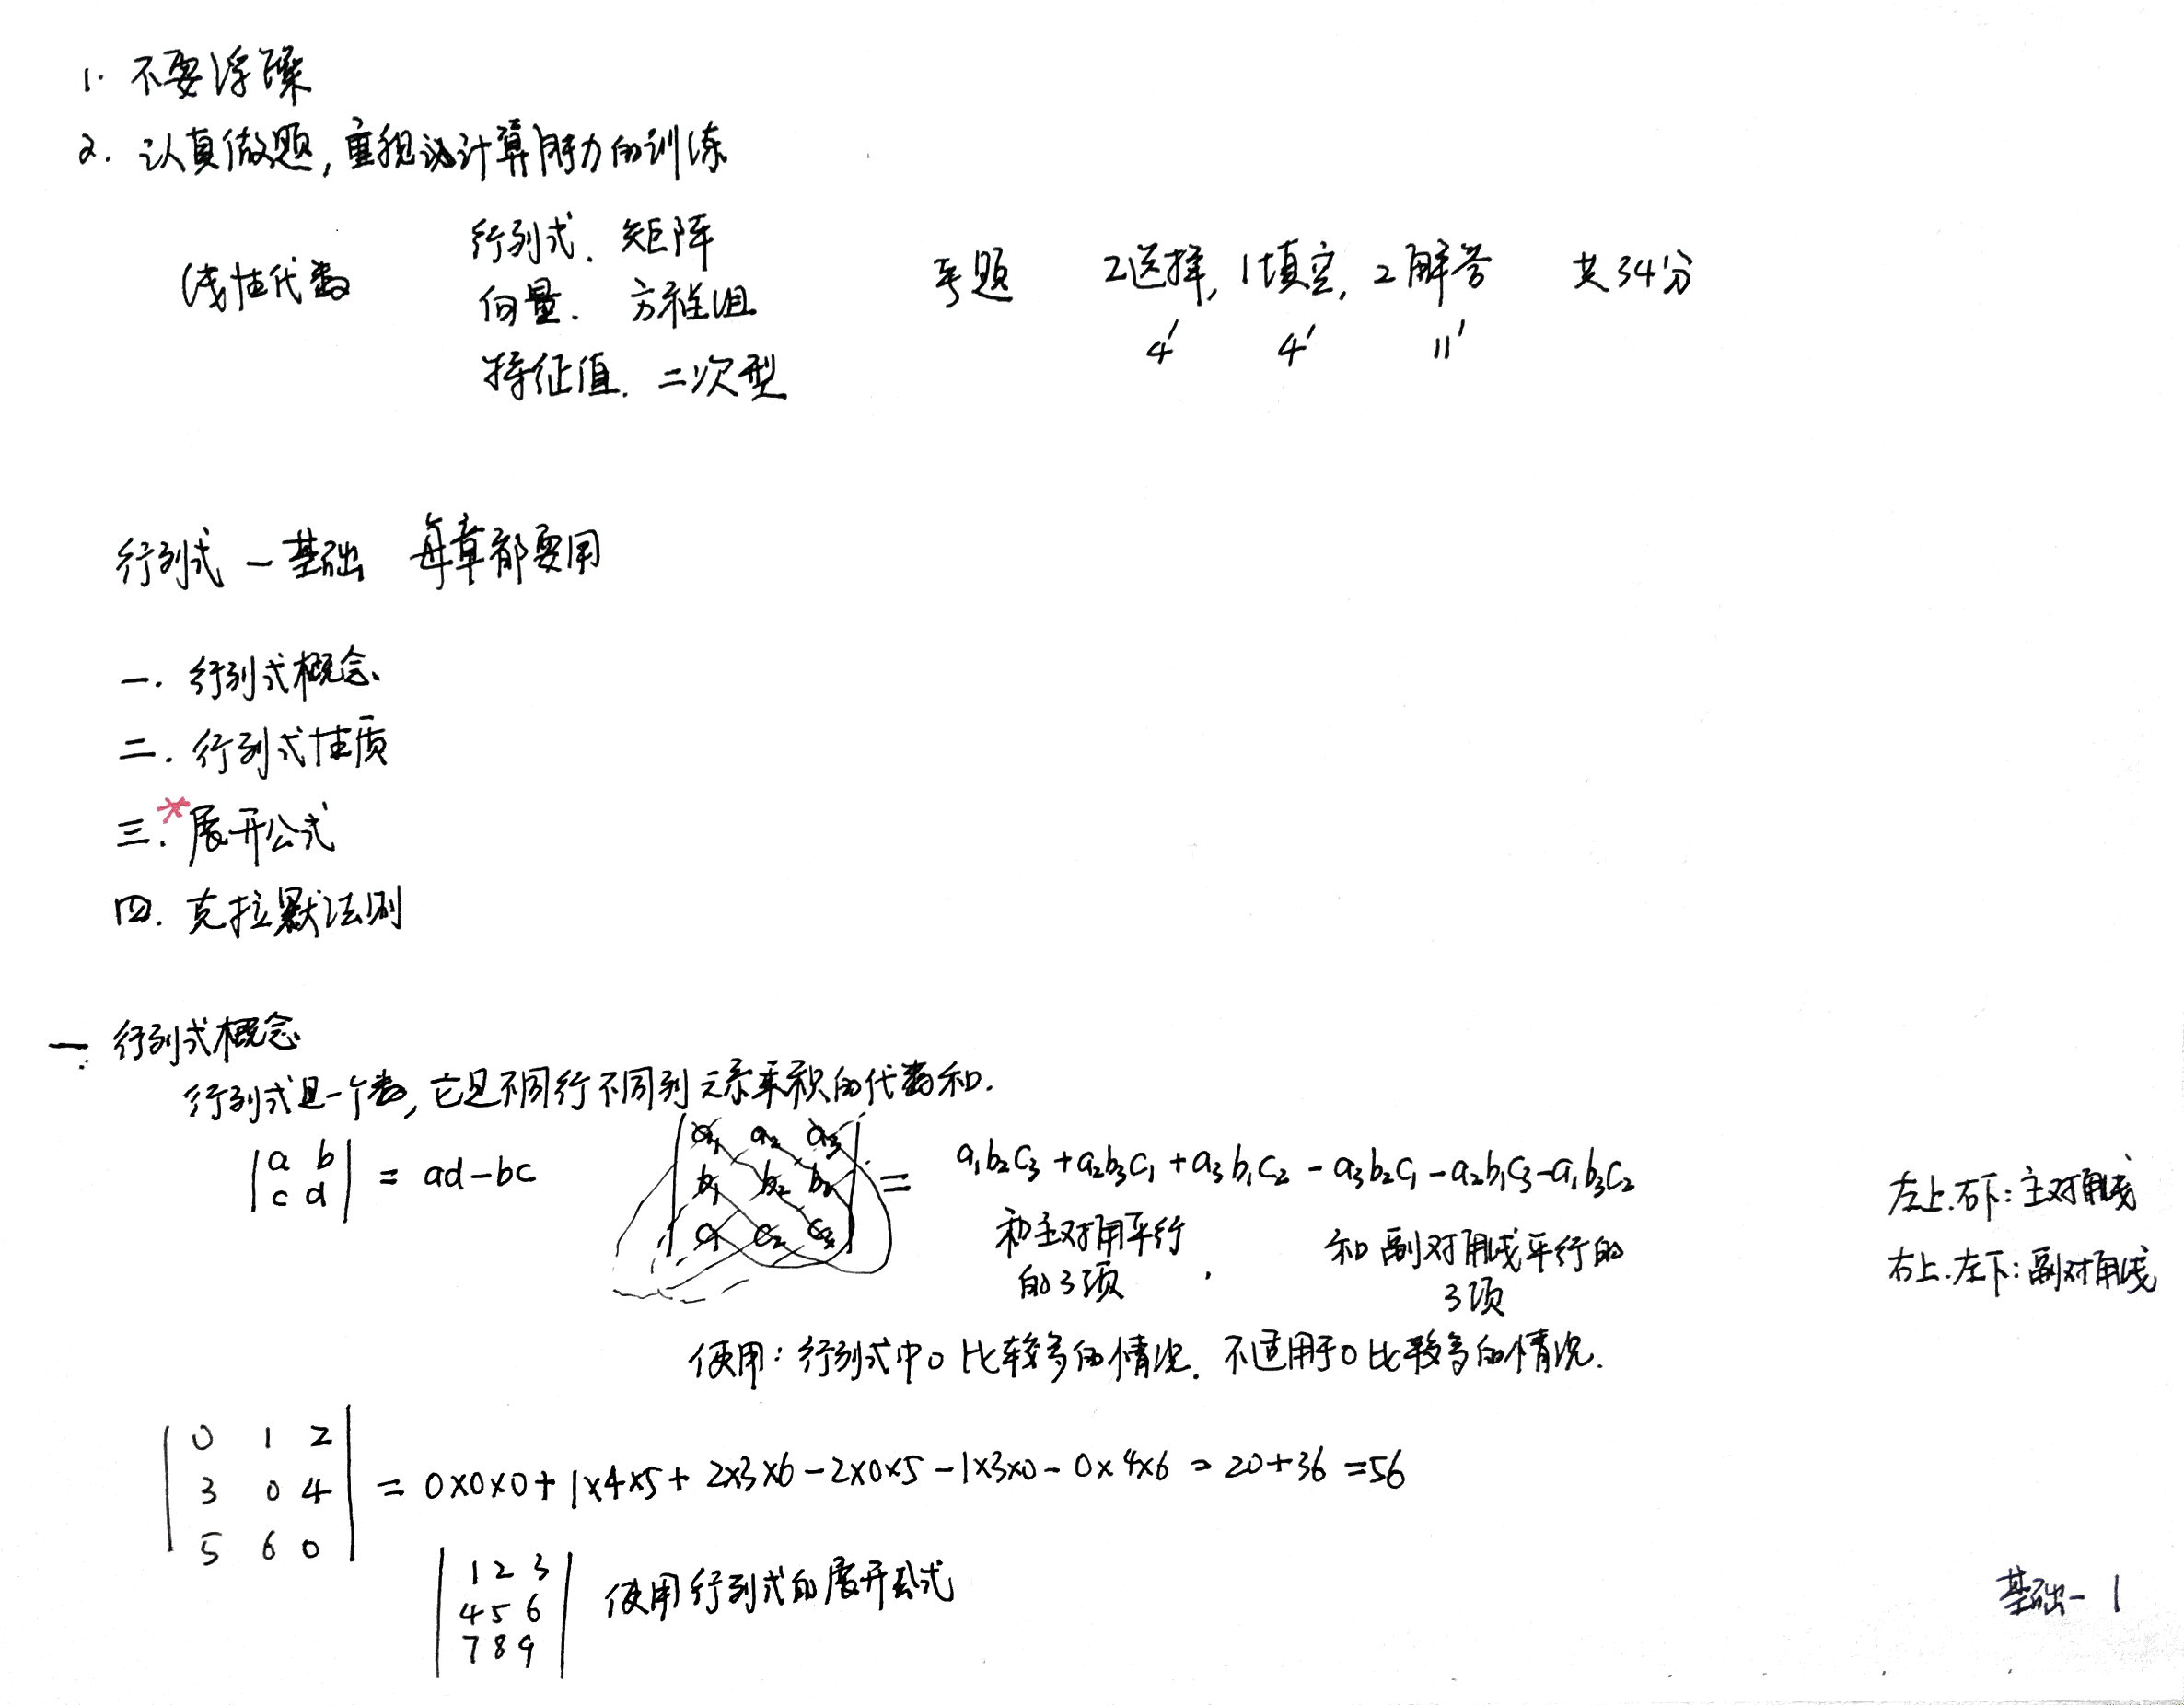 1. 不要浮躁
2. 认真做题,重视计算能力的训练
线性代数 行列式、矩阵
向量、方程组
特征值、二次型
考题 2选择, 1填空, 2解答 共34分
4' 4' 11'
行列式 — 基础 每章都要用
一. 行列式概念
二. 行列式性质
三.* 展开公式
四. 克拉默法则
一. 行列式概念
行列式是一个数, 它是不同行不同列元素乘积的代数和.
|a b|
|c d| = ad-bc
|a₁ a₂ a₃|
|b₁ b₂ b₃| = a₁b₂c₃ + a₂b₃c₁ + a₃b₁c₂ - a₃b₂c₁ - a₂b₁c₃ - a₁b₃c₂
|c₁ c₂ c₃|
和主对角平行的3项, 和副对角线平行的3项
左上.右下: 主对角线
右上.左下: 副对角线
使用: 行列式中0比较多的情况. 不适用于0比较多的情况.
|0 1 2|
|3 0 4| = 0×0×0 + 1×4×5 + 2×3×6 - 2×0×5 - 1×3×0 - 0×4×6 = 20+36 = 56
|5 6 0|
|1 2 3|
|4 5 6| 使用行列式的展开公式
|7 8 9|
基础-1